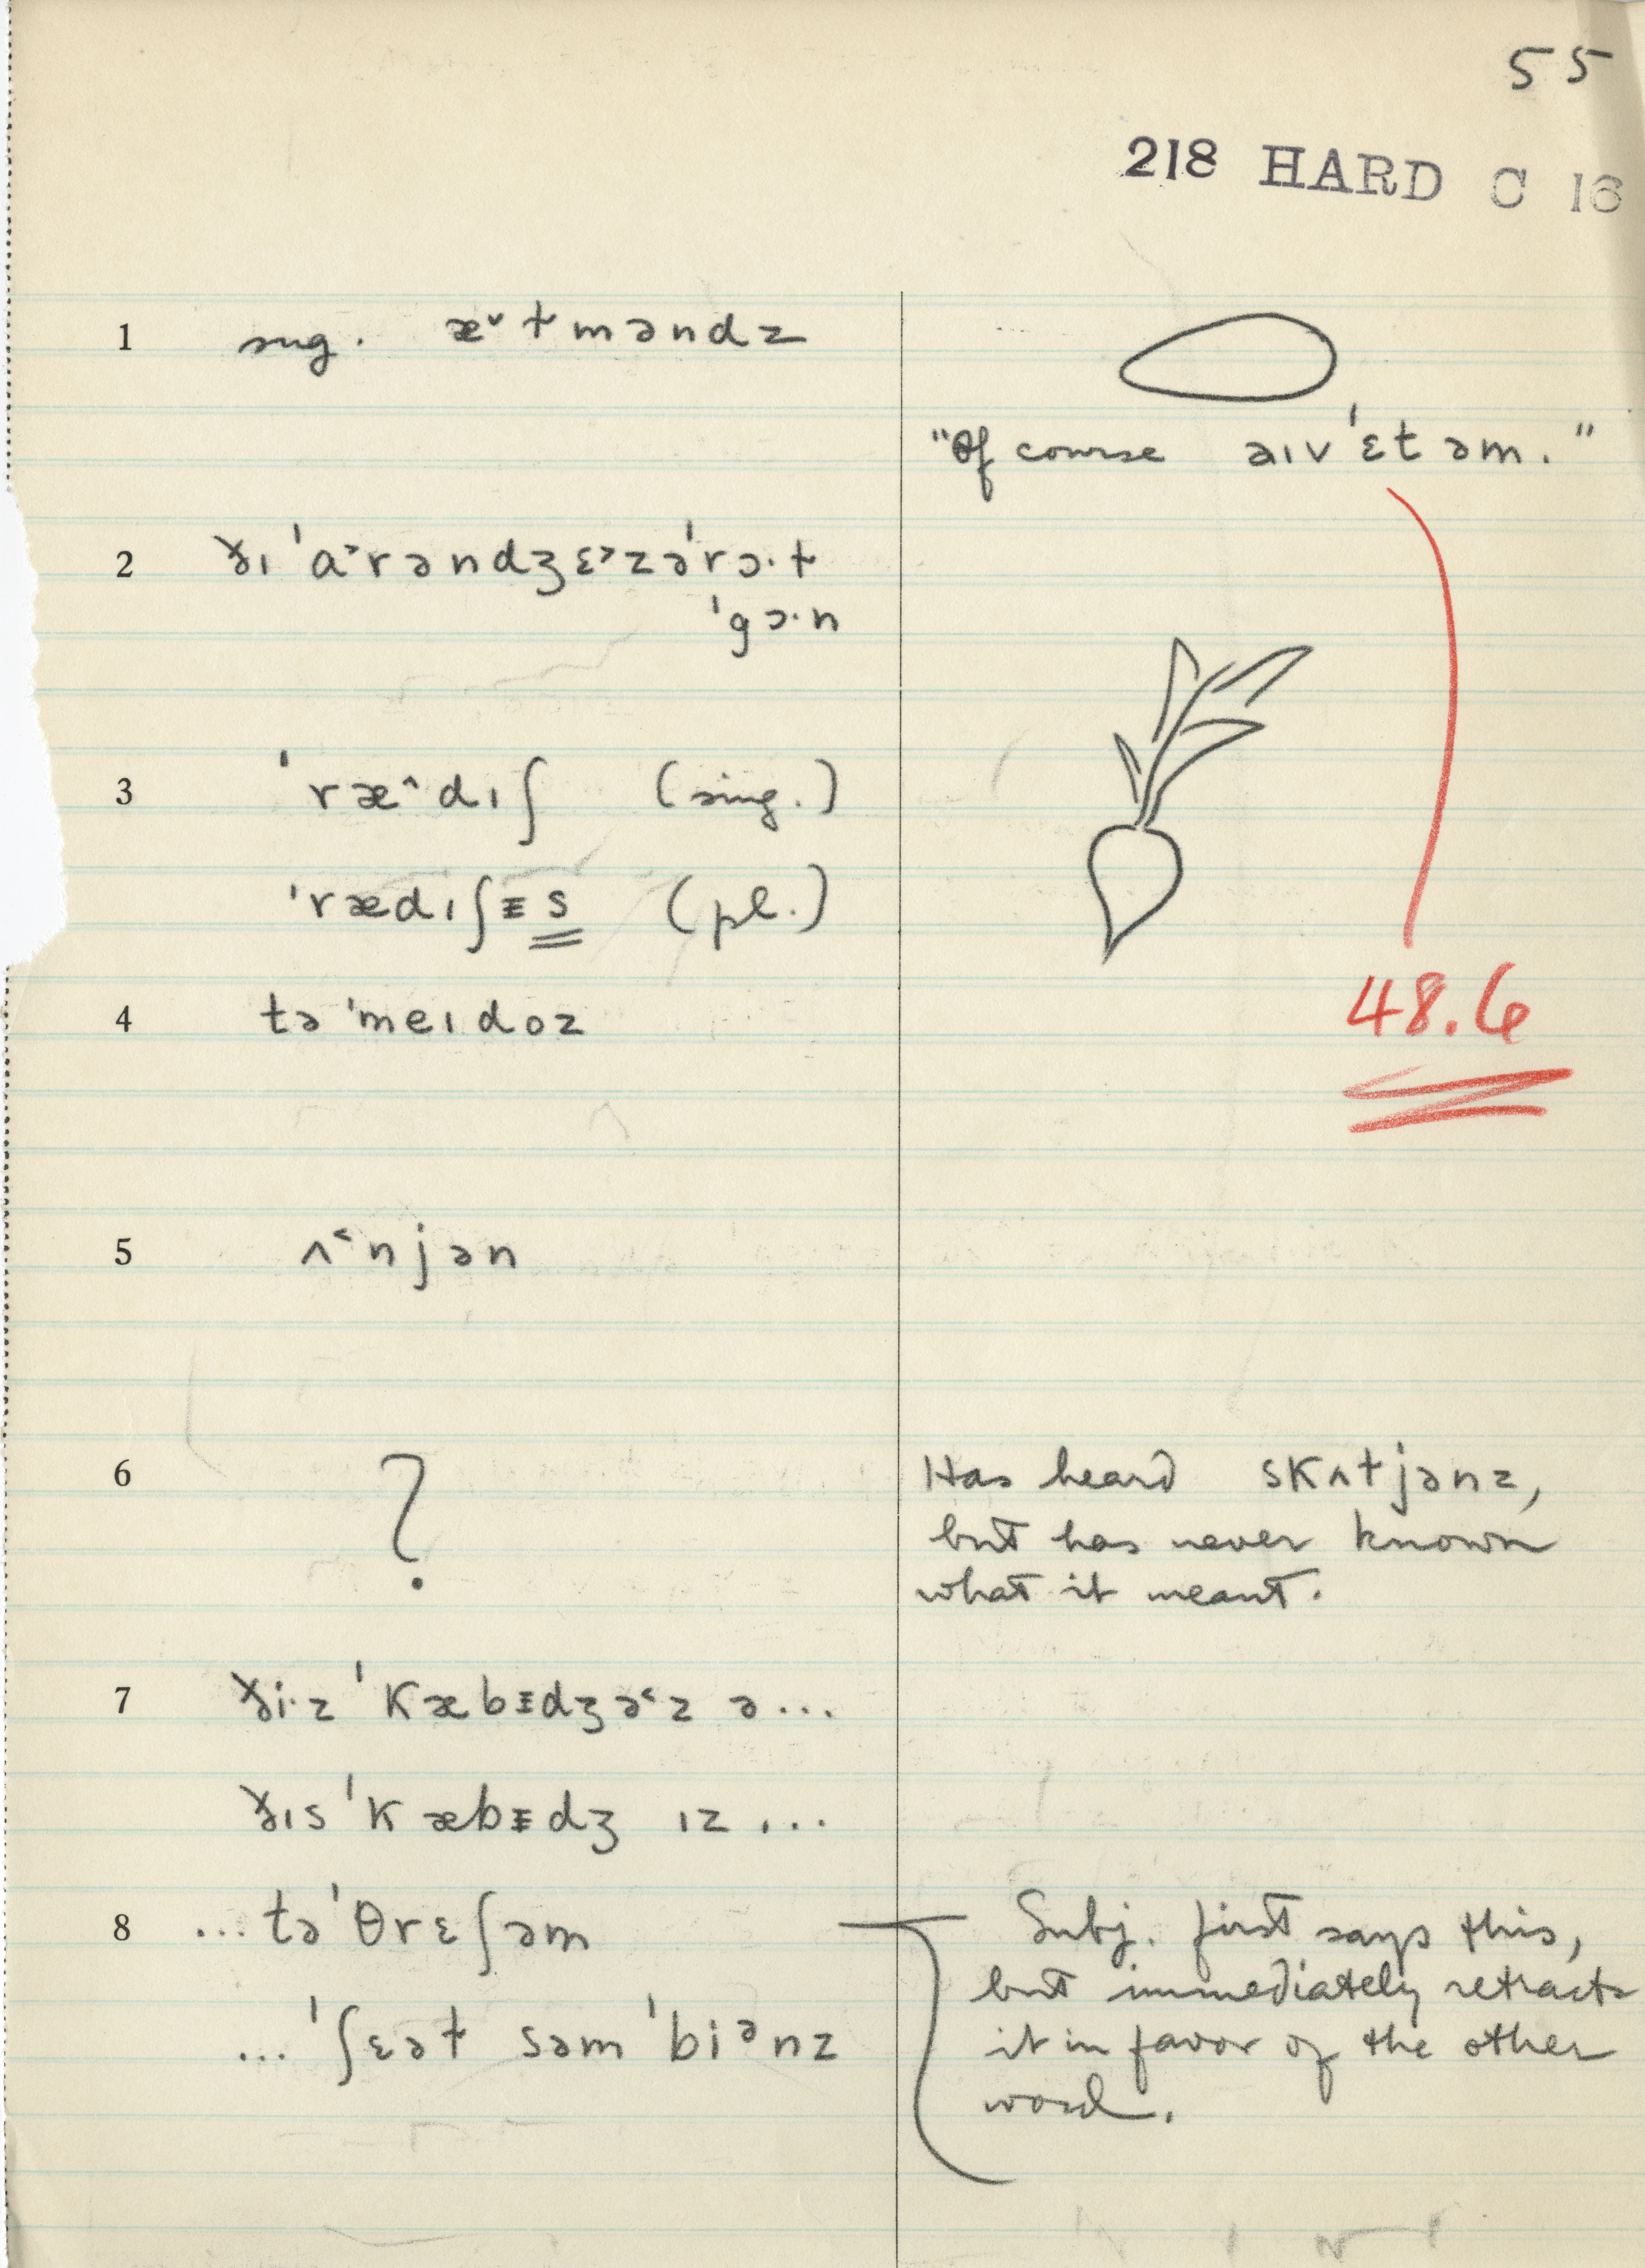 55
218 HARD C 16
1 sug. æ˅ɫməndz
"Of course aɪv ˈɛt əm."
2 ðɪ ˈɑ˃rəndʒɛ˃zəˈrɔ·ɫ
ˈgɔ·n
3 ˈræ^dɪʃ (sing.)
ˈrædɪʃᵻs (pl.)
48.6
4 təˈmeɪdoz
5 ʌ˂njən
6 ? Has heard skʌɫjənz,
but has never known
what it meant.
7 ði·z ˈkæbᵻdʒə˂z ə...
ðɪs ˈkæbᵻdʒ ɪz ...
8 ...təˈθrɛʃəm Subj. first says this,
but immediately retracts
... ˈʃɛəɫ səm ˈbiᵊnz it in favor of the other
word.